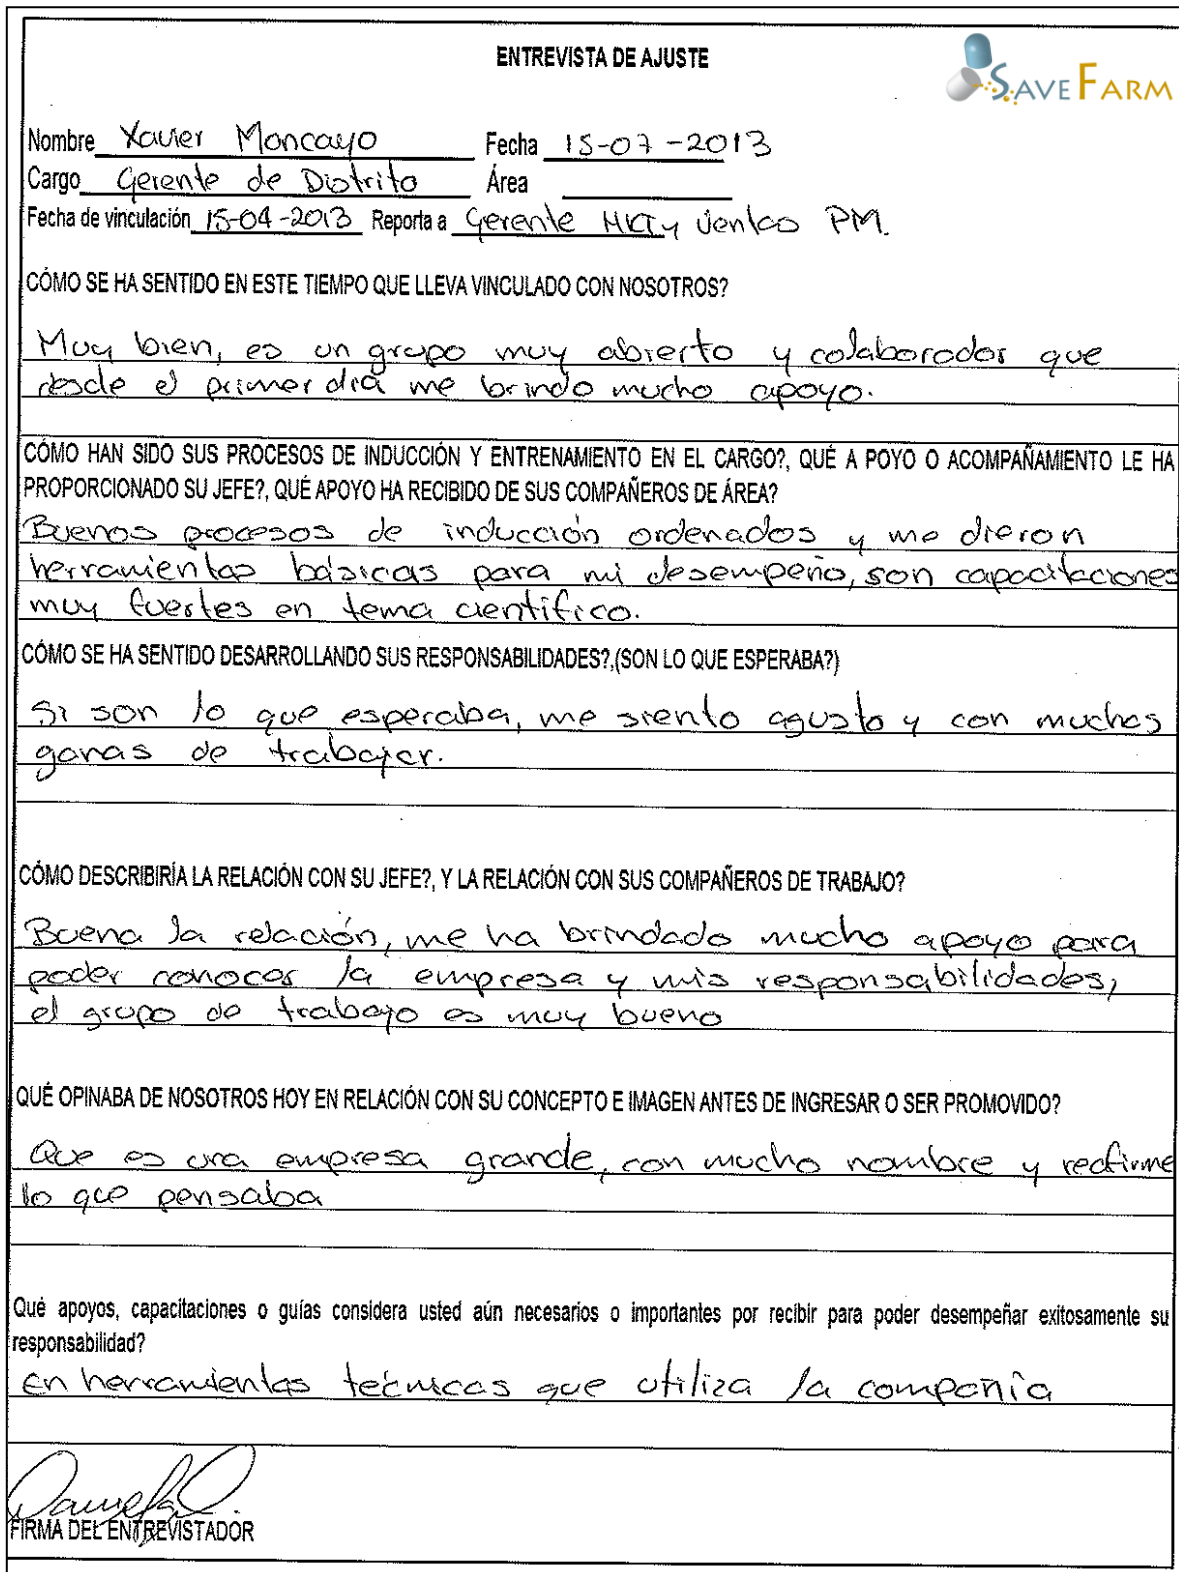 ENTREVISTA DE AJUSTE
SAVEFARM
Nombre Xavier Moncayo Fecha 15-07-2013
Cargo Gerente de Distrito Área
Fecha de vinculación 15-04-2013 Reporta a Gerente MKT y Ventas PM.
CÓMO SE HA SENTIDO EN ESTE TIEMPO QUE LLEVA VINCULADO CON NOSOTROS?
Muy bien, es un grupo muy abierto y colaborador que
desde el primer día me brindo mucho apoyo.
CÓMO HAN SIDO SUS PROCESOS DE INDUCCIÓN Y ENTRENAMIENTO EN EL CARGO?, QUÉ A POYO O ACOMPAÑAMIENTO LE HA
PROPORCIONADO SU JEFE?, QUÉ APOYO HA RECIBIDO DE SUS COMPAÑEROS DE ÁREA?
Buenos procesos de inducción ordenados y me dieron
herramientas básicas para mi desempeño, son capacitaciones
muy fuertes en tema científico.
CÓMO SE HA SENTIDO DESARROLLANDO SUS RESPONSABILIDADES?,(SON LO QUE ESPERABA?)
Si son lo que esperaba, me siento agusto y con muchas
ganas de trabajar.
CÓMO DESCRIBIRÍA LA RELACIÓN CON SU JEFE?, Y LA RELACIÓN CON SUS COMPAÑEROS DE TRABAJO?
Buena la relación, me ha brindado mucho apoyo para
poder conocer la empresa y mis responsabilidades,
el grupo de trabajo es muy bueno
QUÉ OPINABA DE NOSOTROS HOY EN RELACIÓN CON SU CONCEPTO E IMAGEN ANTES DE INGRESAR O SER PROMOVIDO?
Que es una empresa grande, con mucho nombre y reafirme
lo que pensaba
Qué apoyos, capacitaciones o guías considera usted aún necesarios o importantes por recibir para poder desempeñar exitosamente su
responsabilidad?
En herramientas técnicas que utiliza la compañía
FIRMA DEL ENTREVISTADOR